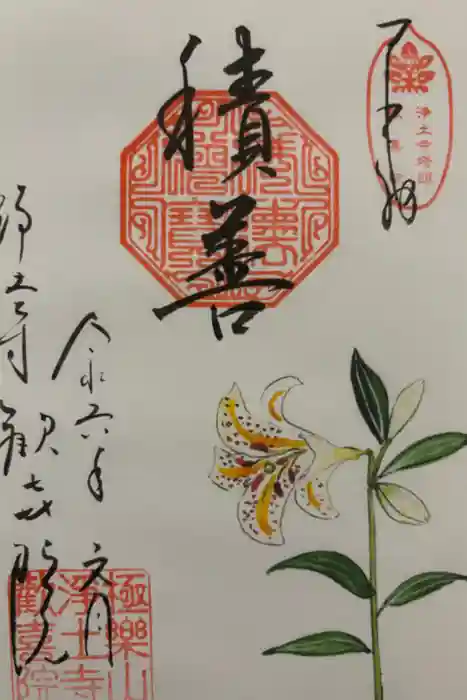 奉拝
浄土寺塔頭
積善
令和六年 文月
浄土寺 歓喜院
極樂山
淨土寺
歡喜院